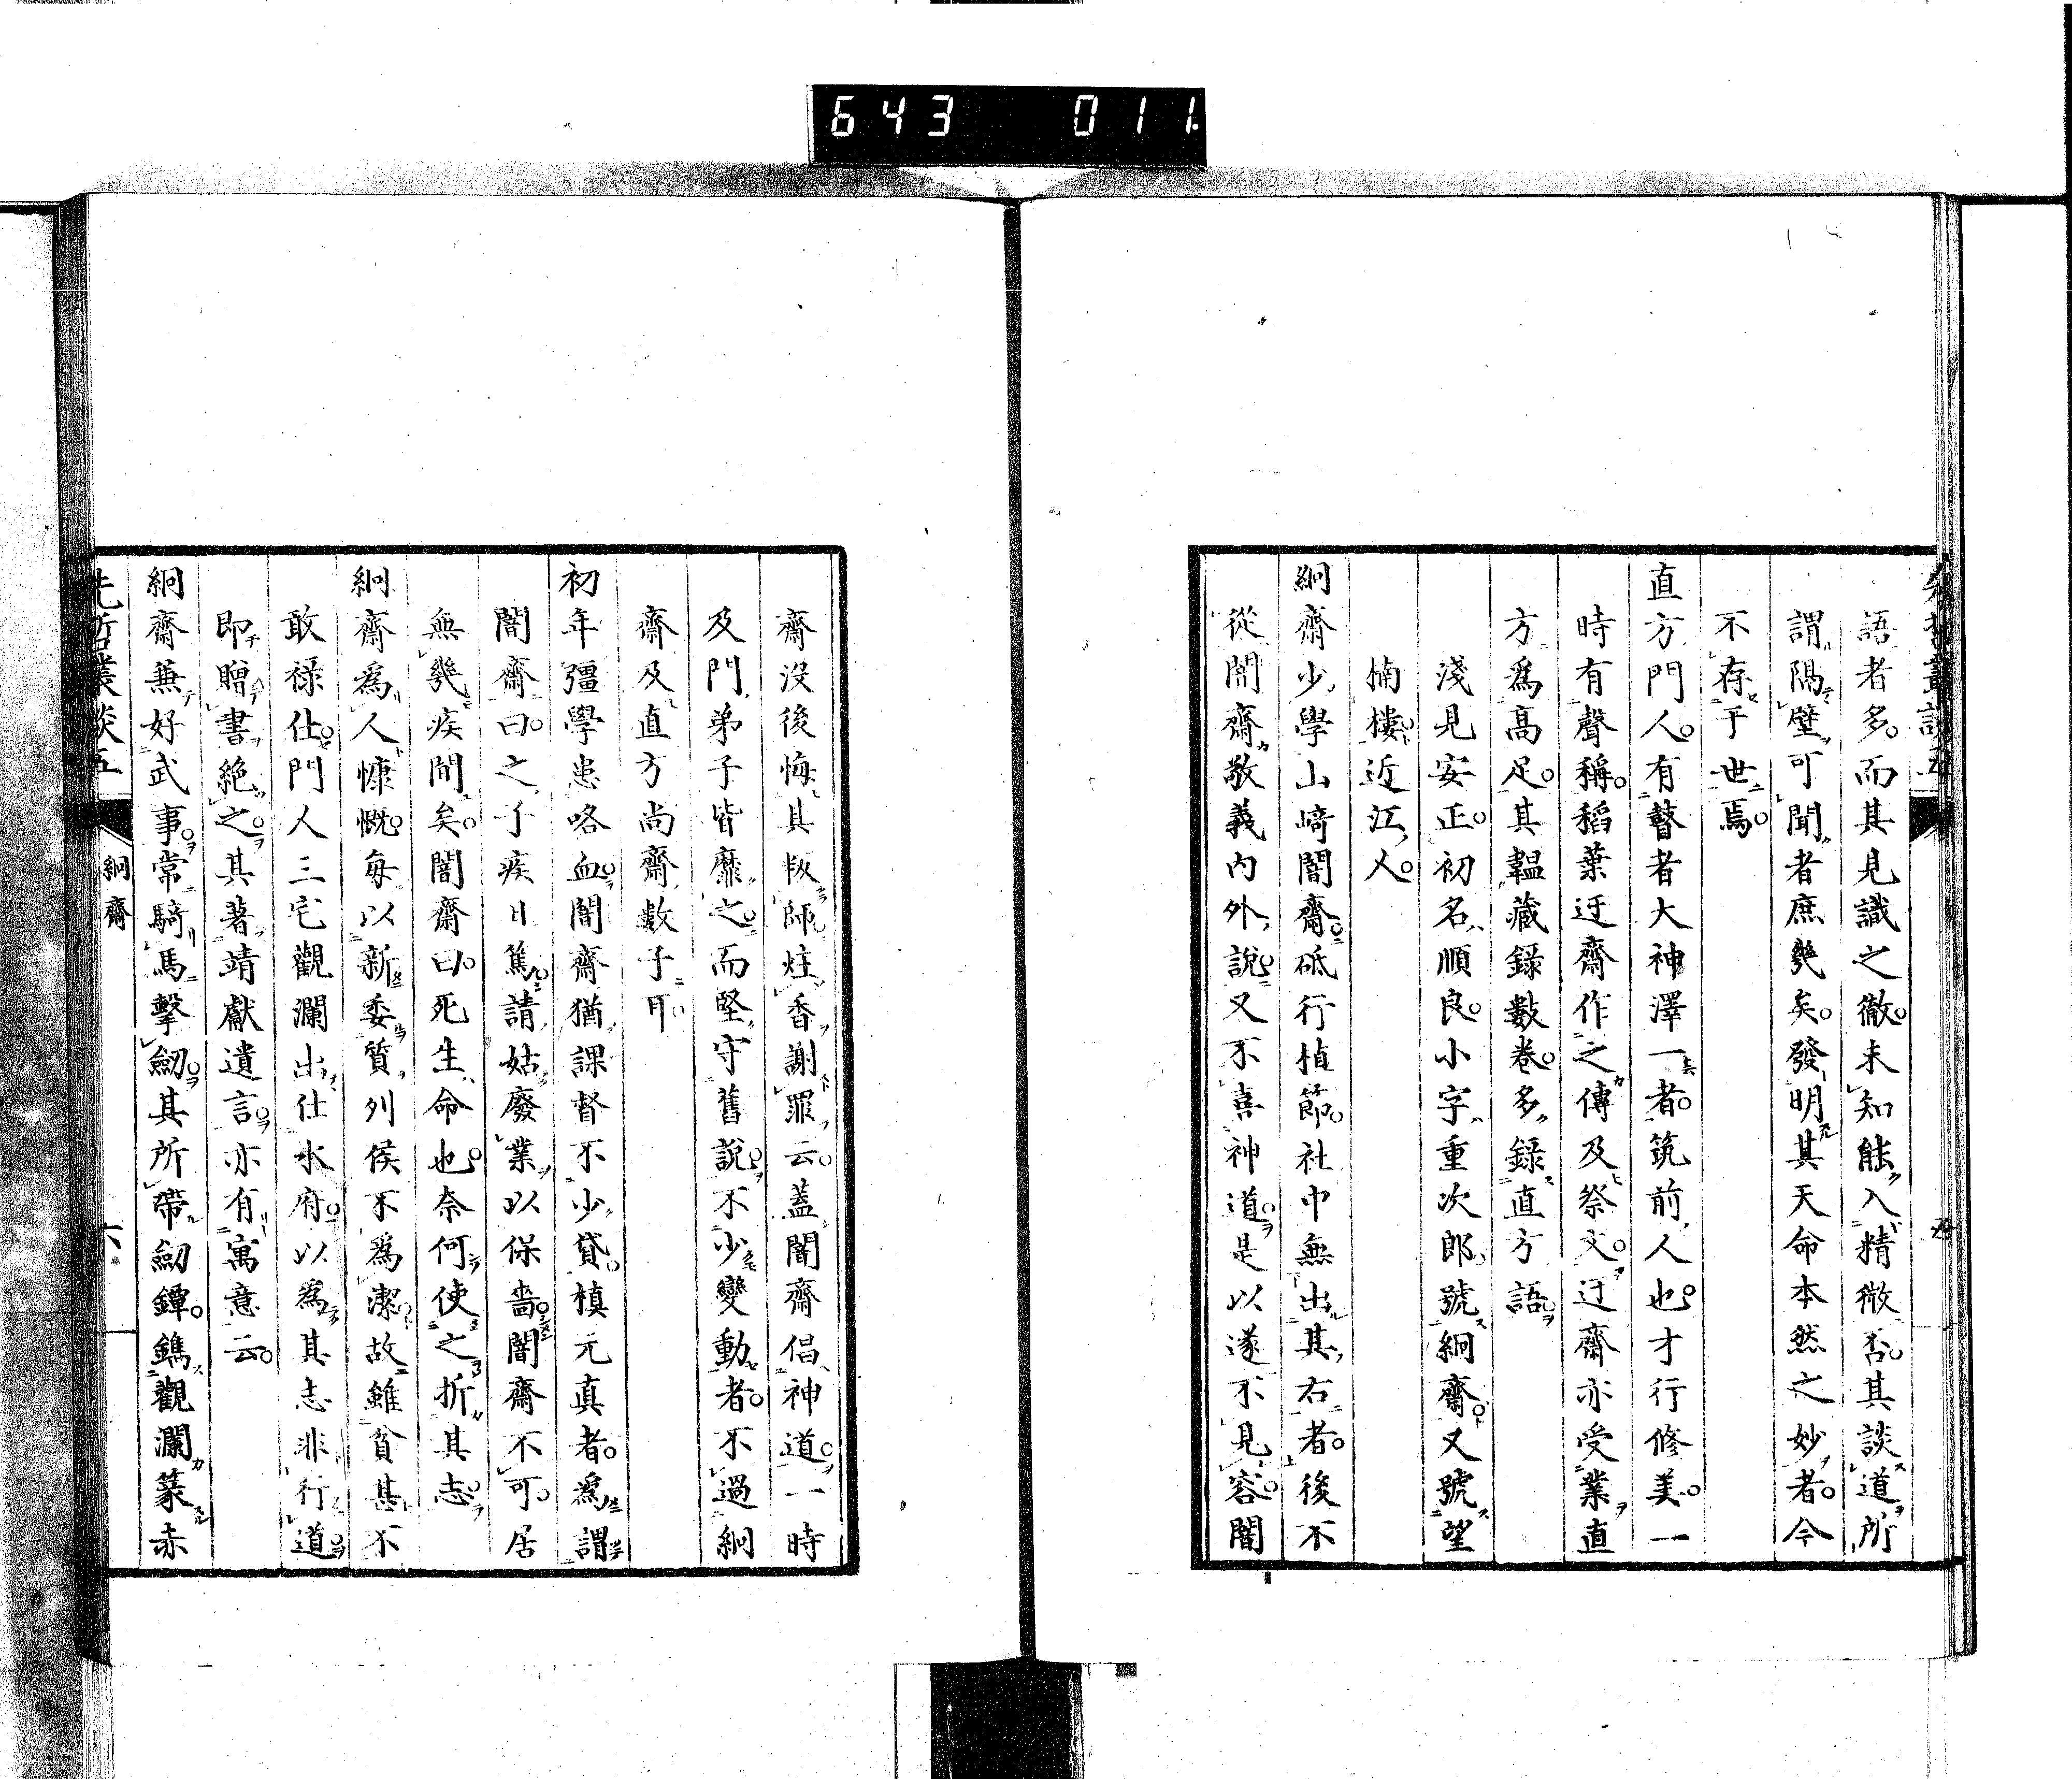 643 011
語者多。而其見識之徹。未知能入精微否。其談道所
謂隔壁可聞者庶幾矣。發明其天命本然之妙者。今
不存于世焉。
直方門人。有瞽者大神澤一者。筑前人也。才行修美。一
時有聲稱。稻葉迂齋作之傳及祭文。迂齋亦受業直
方爲高足。其韞藏錄數卷。多錄直方語。
淺見安正。初名順良。小字重次郎。號絅齋。又號望
楠樓。近江人。
絅齋少學山﨑闇齋。砥行植節。社中無出其右者。後不
從闇齋敬義內外說。又不喜神道。是以遂不見容。闇
齋沒後悔其叛師。炷香謝罪云。蓋闇齋倡神道。一時
及門弟子皆靡之。而堅守舊說。不少變動者。不過絅
齋及直方尚齋數子耳。
初年彊學患咯血。闇齋猶課督不少貸。槙元真者。爲謂
闇齋曰。之子疾日篤。請姑廢業以保嗇。闇齋不可。居
無幾疾間矣。闇齋曰。死生命也。奈何使之折其志。
絅齋爲人慷慨。每以新委質列侯不爲潔。故雖貧甚不
敢祿仕。門人三宅觀瀾出仕水府。以爲其志非行道。
即贈書絕之。其著靖獻遺言。亦有寓意云。
絅齋兼好武事。常騎馬擊劒。其所帶劒鐔。鐫觀瀾篆赤
先哲叢談五
絅齋
六